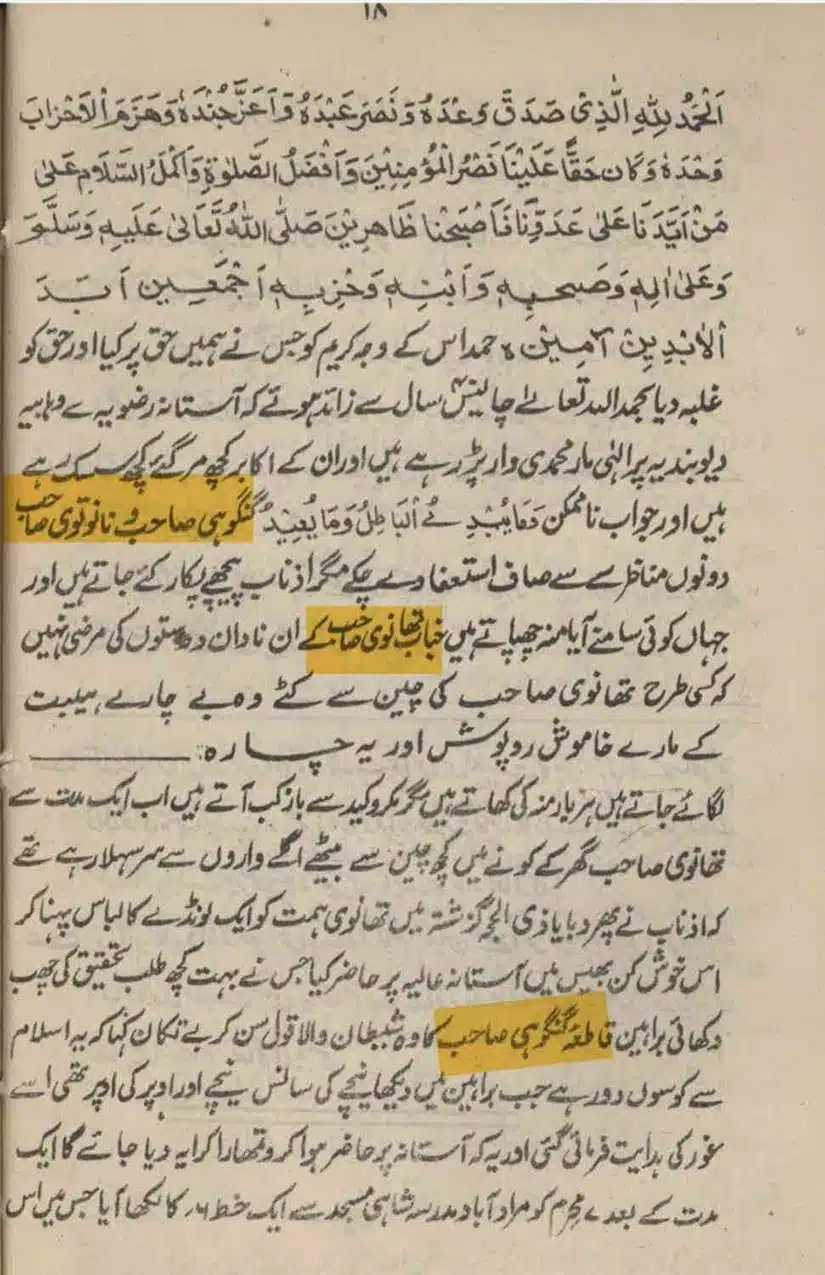 ١٨
اَلْحَمْدُ لِلّٰهِ الَّذِیْ صَدَقَ وَعْدَهٗ وَنَصَرَ عَبْدَهٗ وَاَعَزَّ جُنْدَهٗ وَهَزَمَ الْاَحْزَابَ
وَحْدَهٗ وَكَانَ حَقًّا عَلَيْنَا نَصْرُ الْمُؤْمِنِيْنَ وَاَفْضَلُ الصَّلٰوةِ وَاَكْمَلُ السَّلَامِ عَلٰی
مَنْ اَيَّدَنَا عَلٰی عَدُوِّنَا فَاَصْبَحْنَا ظَاهِرِيْنَ صَلَّی اللّٰهُ تَعَالٰی عَلَيْهِ وَسَلَّمَ
وَعَلٰی اٰلِهٖ وَصَحْبِهٖ وَابْنِهٖ وَحِزْبِهٖ اَجْمَعِيْنَ اَبَدَ
الْاٰبِدِيْنَ اٰمِيْنَ، حمد اس کے وجہ کریم کو جس نے ہمیں حق پر کیا اور حق کو
غلبہ دیا بحمد اللہ تعالےٰ چالیس ۴۰ سال سے زائد ہوئے کہ آستانہ رضویہ سے وہابیہ
دیوبندیہ پر الٰہی مار محمدی وار پڑ رہے ہیں اور ان کے اکابر کچھ مر گئے کچھ سسک رہے
ہیں اور جواب ناممکن وَمَا يُبْدِئُ الْبَاطِلُ وَمَا يُعِيْدُ گنگوہی صاحب و نانوتوی صاحب
دونوں مناظرے سے صاف استعفا دے چکے مگر اذناب پیچھے پکار کئے جاتے ہیں اور
جہاں کوئی سامنے آیا منہ چھپاتے ہیں جناب تھانوی صاحب کے ان نادان دوستوں کی مرضی نہیں
کہ کسی طرح تھانوی صاحب کی چین سے کٹے وہ بے چارے ہیبت
کے مارے خاموش روپوش اور یہ چارہ:
لگائے جاتے ہیں ہر بار منہ کی کھاتے ہیں مگر مکر و کید سے باز کب آتے ہیں اب ایک مدت سے
تھانوی صاحب گھر کے کونے میں کچھ چین سے بیٹھے اگلے واروں سے سر سہلا رہے تھے
کہ اذناب نے پھر دبایا ذی الحجہ گزشتہ میں تھانوی ہمت کو ایک لونڈے کا لباس پہنا کر
اس خوش کن بھیس میں آستانہ عالیہ پر حاضر کیا جس نے بہت کچھ طلب تحقیق کی چھب
دکھائی براہین قاطعہ گنگوہی صاحب کا وہ شیطان والا قول سن کر بے تکان کہا کہ یہ اسلام
سے کوسوں دور ہے جب براہین میں دیکھا نیچے کی سانس نیچے اور اوپر کی اوپر تھی اسے
غور کی ہدایت فرمائی گئی اور یہ کہ آستانہ پر حاضر ہوا کرو تمھارا کرایہ دیا جائے گا ایک
مدت کے بعد ۷ محرم کو مراد آباد مدرسہ شاہی مسجد سے ایک خط ۶؍ کا لکھا آیا جس میں اس